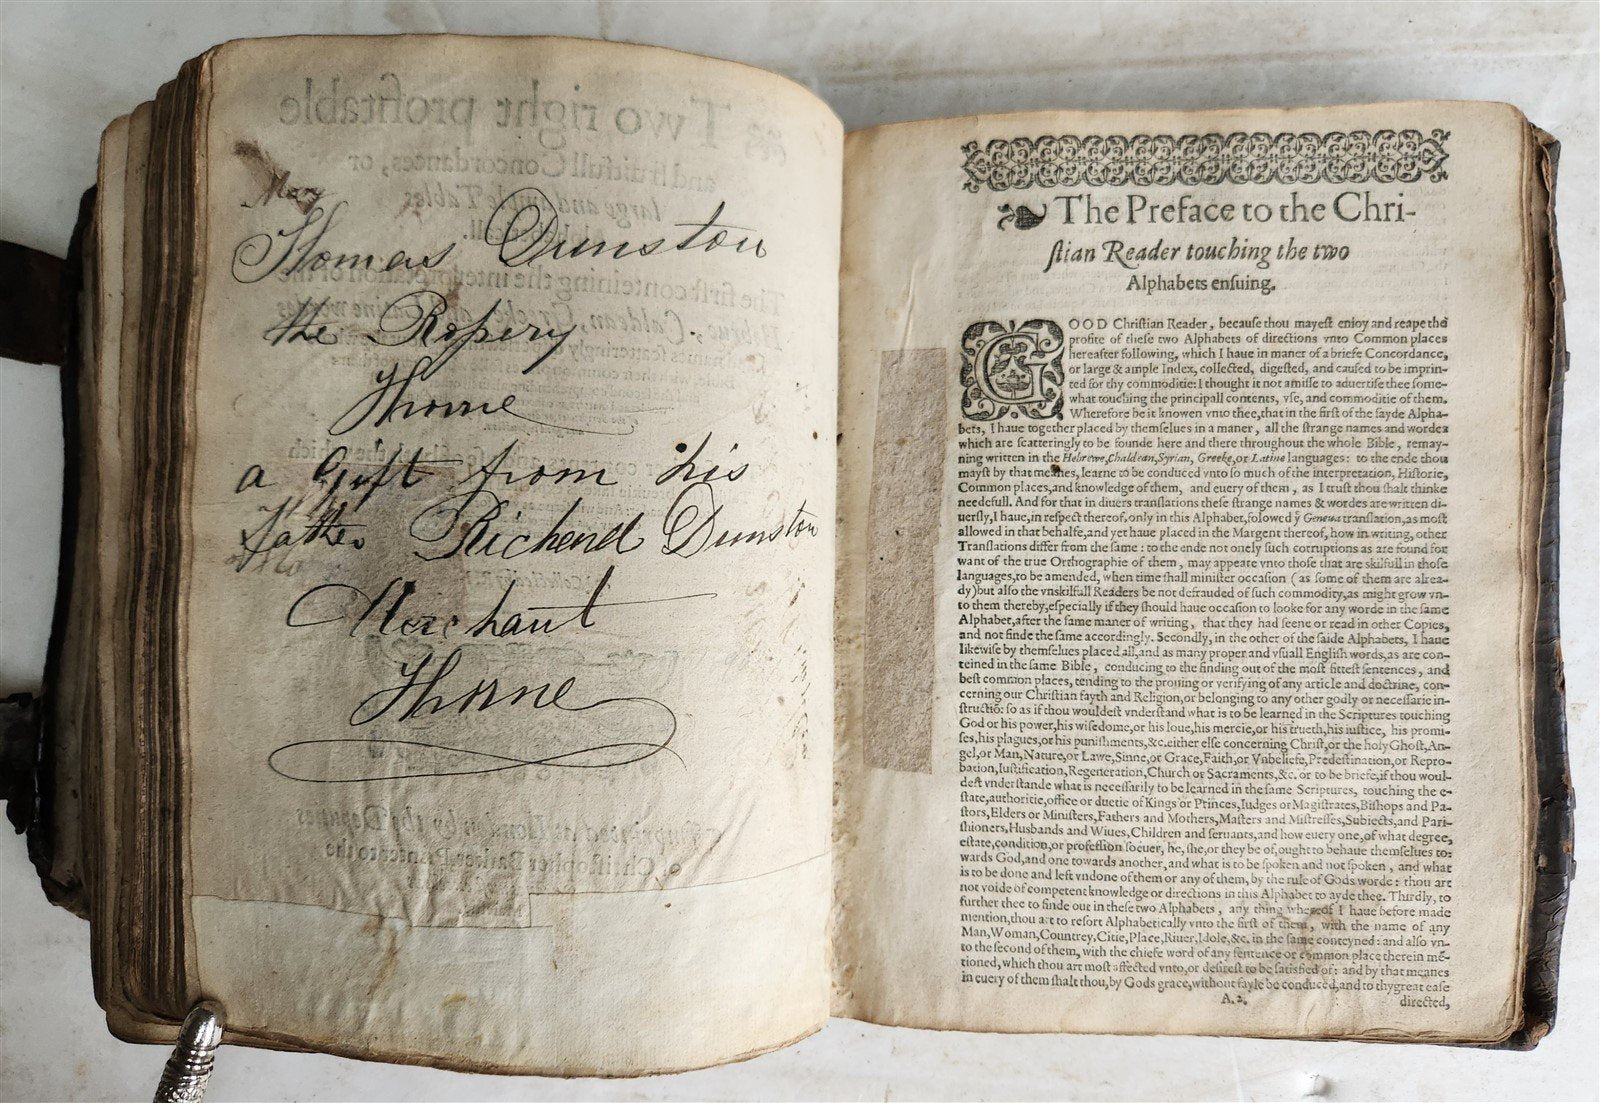 Mary
Thomas Dunston
the Ropery
Thorne
a Gift from his
Father Richerd Dunston
Merchant
Thorne
Two right profitable
and fruitfull Concordances, or
large and ample Tables
The first conteining the interpretation of the
Hebrue, Caldean, Greeke, and Latine wordes
Imprinted at London by the Deputies
of Christopher Barker, Printer to the
The Preface to the Chri-
ſtian Reader touching the two
Alphabets enſuing.
GOOD Chriſtian Reader, becauſe thou mayeſt enioy and reape the
profite of theſe two Alphabets of directions vnto Common places
hereafter following, which I haue in maner of a briefe Concordance,
or large & ample Index, collected, digeſted, and cauſed to be imprin-
ted for thy commoditie: I thought it not amiſſe to aduertiſe thee ſome-
what touching the principall contents, vſe, and commoditie of them.
Wherefore be it knowen vnto thee, that in the firſt of the ſayde Alpha-
bets, I haue together placed by themſelues in a maner, all the ſtrange names and wordes
which are ſcatteringly to be founde here and there throughout the whole Bible, remay-
ning written in the Hebrewe, Chaldean, Syrian, Greeke, or Latine languages: to the ende thou
mayſt by that meanes, learne to be conduced vnto ſo much of the interpretation, Hiſtorie,
Common places, and knowledge of them, and euery of them, as I truſt thou ſhalt thinke
needefull. And for that in diuers tranſlations theſe ſtrange names & wordes are written di-
uerſly, I haue, in reſpect thereof, only in this Alphabet, folowed ẏ Geneua tranſlation, as moſt
allowed in that behalfe, and yet haue placed in the Margent thereof, how in writing, other
Tranſlations differ from the ſame: to the ende not onely ſuch corruptions as are found for
want of the true Orthographie of them, may appeare vnto thoſe that are skilfull in thoſe
languages, to be amended, when time ſhall miniſter occaſion (as ſome of them are alrea-
dy) but alſo the vnskilfull Readers be not defrauded of ſuch commodity, as might grow vn-
to them thereby, eſpecially if they ſhould haue occaſion to looke for any worde in the ſame
Alphabet, after the ſame maner of writing, that they had ſeene or read in other Copies,
and not finde the ſame accordingly. Secondly, in the other of the ſaide Alphabets, I haue
likewiſe by themſelues placed all, and as many proper and vſuall Engliſh words, as are con-
teined in the ſame Bible, conducing to the finding out of the moſt fitteſt ſentences, and
beſt common places, tending to the prouing or verifying of any article and doctrine, con-
cerning our Chriſtian fayth and Religion, or belonging to any other godly or neceſſarie in-
ſtructiõ: ſo as if thou wouldeſt vnderſtand what is to be learned in the Scriptures touching
God or his power, his wiſedome, or his loue, his mercie, or his trueth, his iuſtice, his promi-
ſes, his plagues, or his puniſhments, &c. either elſe concerning Chriſt, or the holy Ghoſt, An-
gel, or Man, Nature, or Lawe, Sinne, or Grace, Faith, or Vnbeliefe, Predeſtination, or Repro-
bation, Iuſtification, Regeneration, Church or Sacraments, &c. or to be briefe, if thou woul-
deſt vnderſtande what is neceſſarily to be learned in the ſame Scriptures, touching the e-
ſtate, authoritie, office or duetie of Kings or Princes, Iudges or Magiſtrates, Biſhops and Pa-
ſtors, Elders or Miniſters, Fathers and Mothers, Maſters and Miſtreſſes, Subiects, and Pari-
ſhioners, Husbands and Wiues, Children and ſeruants, and how euery one, of what degree,
eſtate, condition, or profeſſion ſoeuer, he, ſhe, or they be of, ought to behaue themſelues to-
wards God, and one towards another, and what is to be ſpoken and not ſpoken, and what
is to be done and left vndone of them or any of them, by the rule of Gods worde: thou art
not voide of competent knowledge or directions in this Alphabet to ayde thee. Thirdly, to
further thee to finde out in theſe two Alphabets, any thing whereof I haue before made
mention, thou art to reſort Alphabetically vnto the firſt of them, with the name of any
Man, Woman, Countrey, Citie, Place, Riuer, Idole, &c. in the ſame conteyned: and alſo vn-
to the ſecond of them, with the chiefe word of any ſentence or common place therein mẽ-
tioned, which thou art moſt affected vnto, or deſireſt to be ſatisfied of: and by that meanes
in euery of them ſhalt thou, by Gods grace, without fayle be conduced, and to thy great eaſe
A.2. directed,